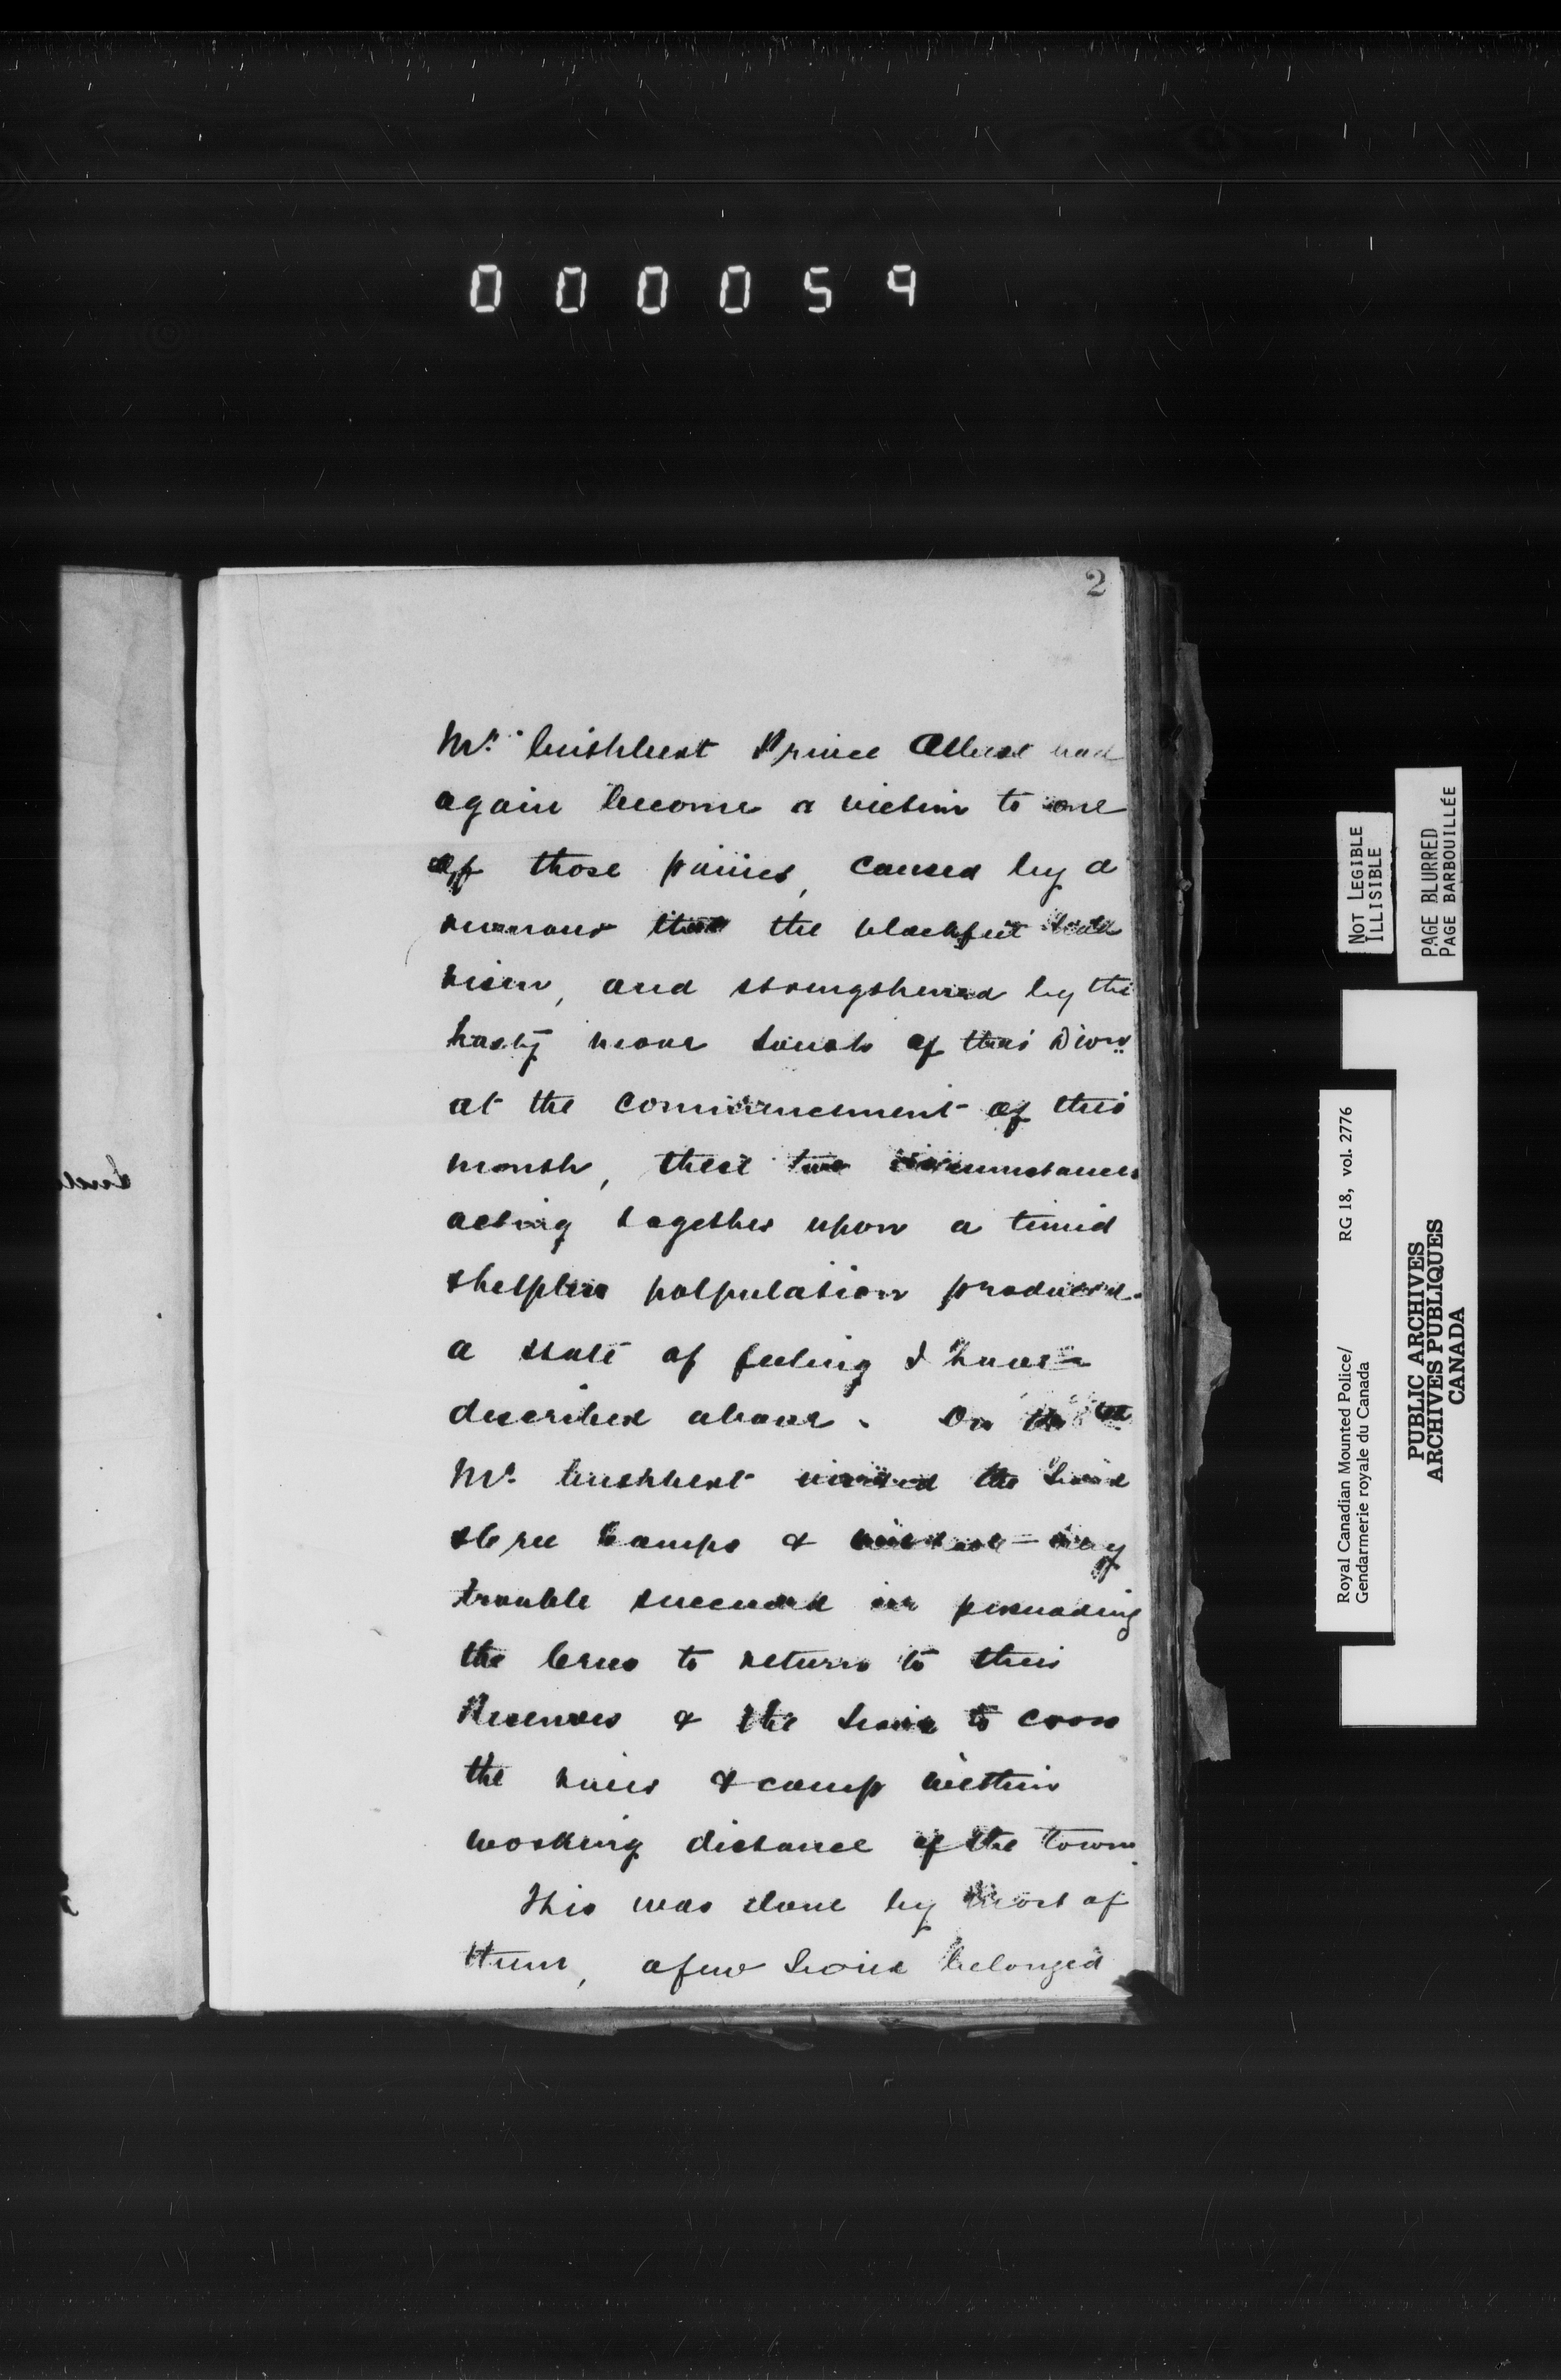 000059
2
Mr. Cuthbert Prince Albert had
again become a victim to one
of those panics, caused by a
rumour that the blackfeet had
risen, and strengthened by the
hasty move south of this Divn
at the commencement of this
month, these two circumstances
acting together upon a timid
& helpless polpulation produced
a state of feeling I have
described above. On the
Mr. Cuthbert visited the Sioux
& Cree Camps & without any
trouble succeeded in persuading
the Crees to return to their
Reserves & the Sioux to cross
the river & camp within
working distance of the town.
This was done by most of
them, a few Sioux belonged
NOT LEGIBLE
ILLISIBLE
PAGE BLURRED
PAGE BARBOUILLÉE
Royal Canadian Mounted Police/ RG 18, vol. 2776
Gendarmerie royale du Canada
PUBLIC ARCHIVES
ARCHIVES PUBLIQUES
CANADA